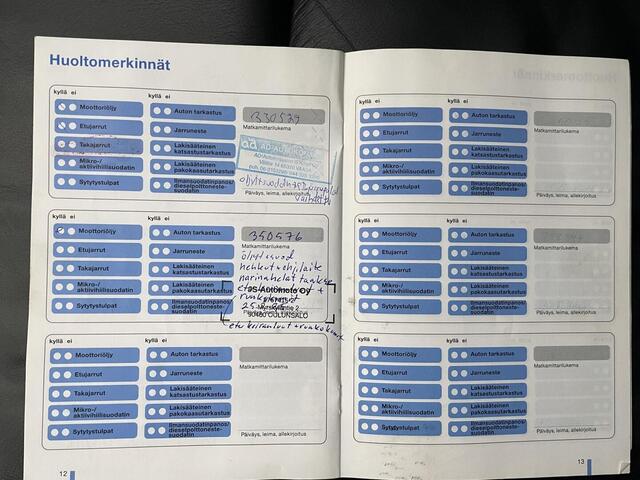 Huoltomerkinnät
kyllä ei
Moottoriöljy
Etujarrut
Takajarrut
Mikro-/
aktiivihiilisuodatin
Sytytystulpat
Auton tarkastus
Jarruneste
Lakisääteinen
katsastustarkastus
Lakisääteinen
pakokaasutarkastus
Ilmansuodatinpanos/
dieselpolttoneste-
suodatin
330539
Matkamittarilukema
Päiväys, leima, allekirjoitus
kyllä ei
Moottoriöljy
Etujarrut
Takajarrut
Mikro-/
aktiivihiilisuodatin
Sytytystulpat
Auton tarkastus
Jarruneste
Lakisääteinen
katsastustarkastus
Lakisääteinen
pakokaasutarkastus
Ilmansuodatinpanos/
dieselpolttoneste-
suodatin
350576
Matkamittarilukema
JS-Automoto Oy
90460 OULUNSALO
kyllä ei
Moottoriöljy
Etujarrut
Takajarrut
Mikro-/
aktiivihiilisuodatin
Sytytystulpat
Auton tarkastus
Jarruneste
Lakisääteinen
katsastustarkastus
Lakisääteinen
pakokaasutarkastus
Ilmansuodatinpanos/
dieselpolttoneste-
suodatin
Matkamittarilukema
Päiväys, leima, allekirjoitus
12
kyllä ei
Moottoriöljy
Etujarrut
Takajarrut
Mikro-/
aktiivihiilisuodatin
Sytytystulpat
Auton tarkastus
Jarruneste
Lakisääteinen
katsastustarkastus
Lakisääteinen
pakokaasutarkastus
Ilmansuodatinpanos/
dieselpolttoneste-
suodatin
Matkamittarilukema
Päiväys, leima, allekirjoitus
kyllä ei
Moottoriöljy
Etujarrut
Takajarrut
Mikro-/
aktiivihiilisuodatin
Sytytystulpat
Auton tarkastus
Jarruneste
Lakisääteinen
katsastustarkastus
Lakisääteinen
pakokaasutarkastus
Ilmansuodatinpanos/
dieselpolttoneste-
suodatin
Matkamittarilukema
Päiväys, leima, allekirjoitus
kyllä ei
Moottoriöljy
Etujarrut
Takajarrut
Mikro-/
aktiivihiilisuodatin
Sytytystulpat
Auton tarkastus
Jarruneste
Lakisääteinen
katsastustarkastus
Lakisääteinen
pakokaasutarkastus
Ilmansuodatinpanos/
dieselpolttoneste-
suodatin
Matkamittarilukema
Päiväys, leima, allekirjoitus
13